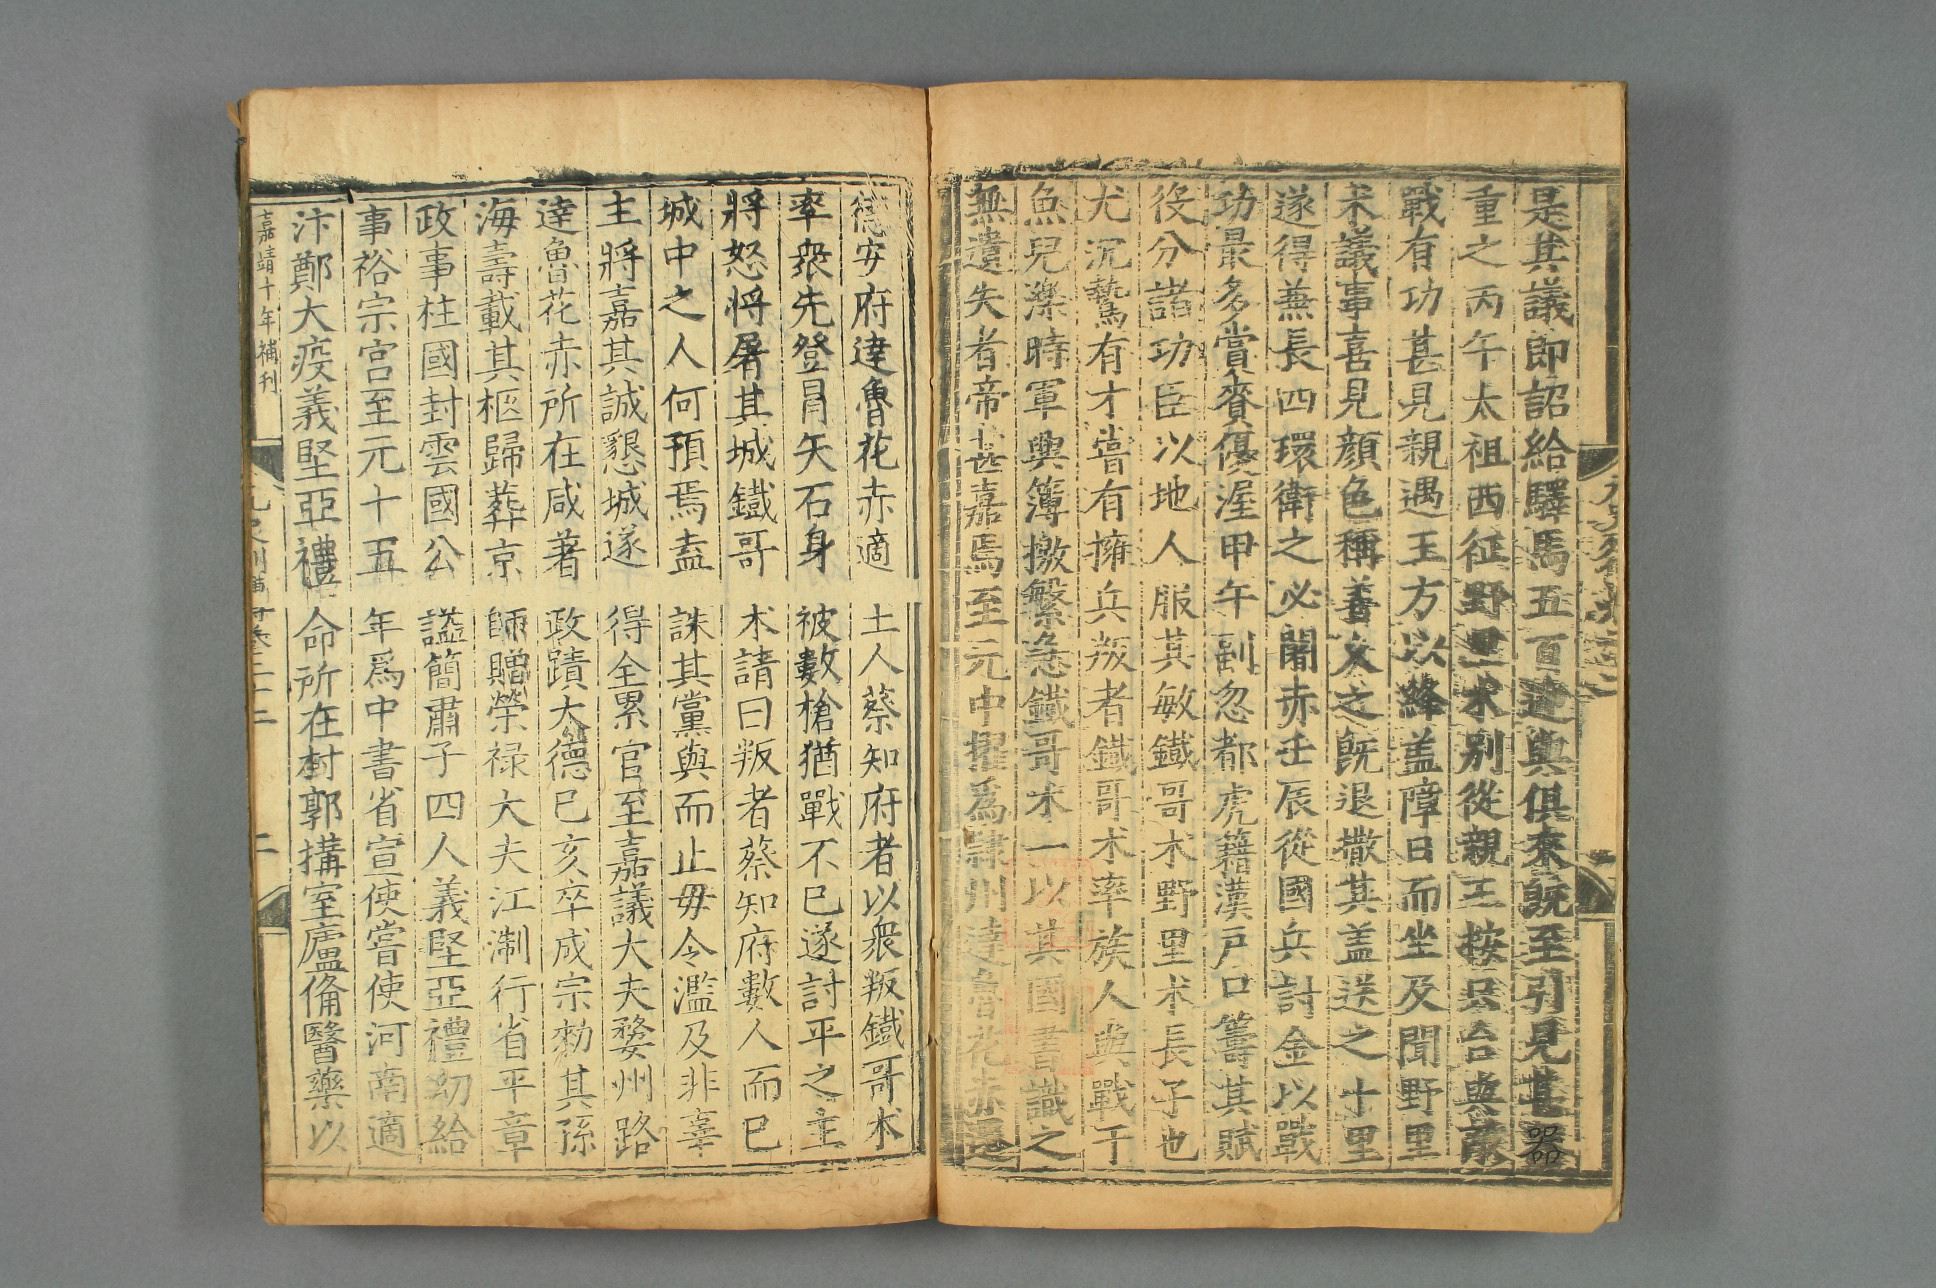 是其議即詔給驛馬五百遣與俱來既至引見甚器
重之丙午太祖西征野里朮別從親王按只台與敵
戰有功甚見親遇王方以絳盖障日而坐及聞野里
朮議事喜見顔色稱善久之既退撤其盖送之十里
遂得兼長四環衛之必闍赤壬辰從國兵討金以戰
功最多賞賚優渥甲午副忽都虎籍漢戶口籌其賦
役分諸功臣以地人服其敏鐵哥朮野里朮長子也
尤沉鷙有才嘗有擁兵叛者鐵哥朮率族人與戰于
魚兒濼時軍興簿檄繁急鐵哥朮一以其國書識之
無遺失者帝甚嘉焉至元中擢爲隸州達魯花赤遷
德安府達魯花赤適土人蔡知府者以衆叛鐵哥朮
率衆先登冐矢石身被數槍猶戰不已遂討平之主
將怒將屠其城鐵哥朮請曰叛者蔡知府數人而已
城中之人何預焉盍誅其黨與而止毋令濫及非辜
主將嘉其誠懇城遂得全累官至嘉議大夫婺州路
達魯花赤所在咸著政蹟大德己亥卒成宗勑其孫
海壽載其柩歸葬京師贈榮禄大夫江淛行省平章
政事柱國封雲國公謚簡肅子四人義堅亞禮幼給
事裕宗宫至元十五年爲中書省宣使嘗使河南適
汴鄭大疫義堅亞禮命所在村郭搆室廬俻醫藥以
嘉靖十年補刊
二